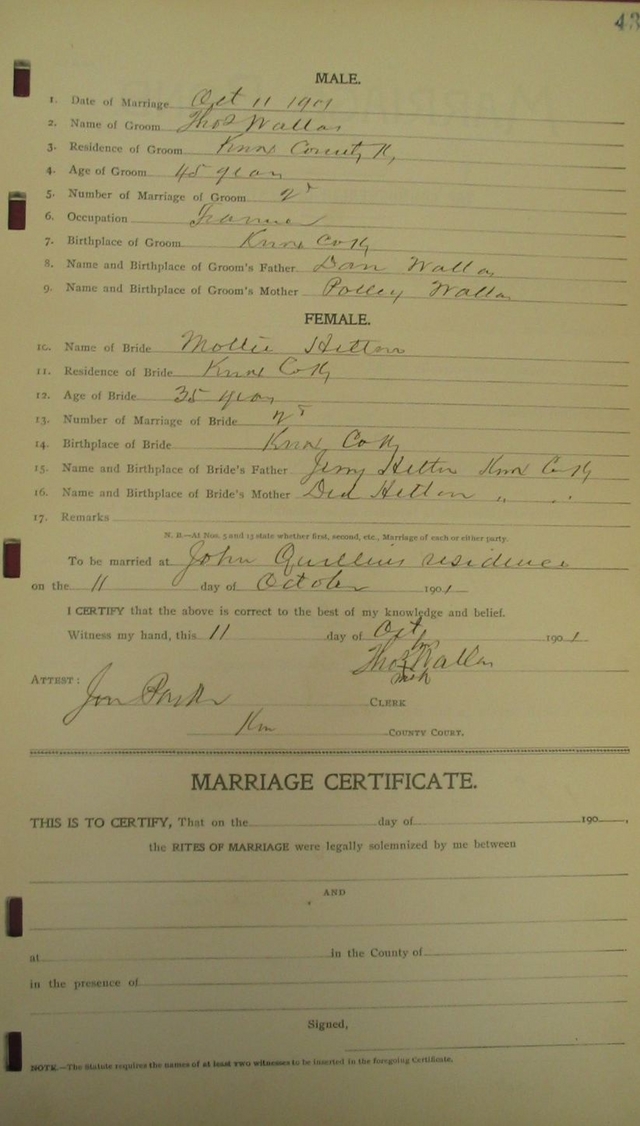 43
MALE.
1. Date of Marriage Oct 11 1901
2. Name of Groom Thos Wallas
3. Residence of Groom Knox County Ky
4. Age of Groom 45 years
5. Number of Marriage of Groom 2d
6. Occupation Farmer
7. Birthplace of Groom Knox Co Ky
8. Name and Birthplace of Groom's Father Dan Wallas
9. Name and Birthplace of Groom's Mother Polley Wallas
FEMALE.
10. Name of Bride Mollie Hitton
11. Residence of Bride Knox Co Ky
12. Age of Bride 35 years
13. Number of Marriage of Bride 2d
14. Birthplace of Bride Knox Co Ky
15. Name and Birthplace of Bride's Father Jerry Hitton Knox Co Ky
16. Name and Birthplace of Bride's Mother Hitton " "
17. Remarks
N. B.—At Nos. 5 and 13 state whether first, second, etc., Marriage of each or either party.
To be married at John residence
on the 11 day of October 1901
I CERTIFY that the above is correct to the best of my knowledge and belief.
Witness my hand, this 11 day of Oct 1901
his
Thos X Wallas
mark
ATTEST: Jon Parker CLERK
Knox COUNTY COURT.
MARRIAGE CERTIFICATE.
THIS IS TO CERTIFY, That on the day of 190 ,
the RITES OF MARRIAGE were legally solemnized by me between
AND
at in the County of
in the presence of
Signed,
NOTE.—The Statute requires the names of at least two witnesses to be inserted in the foregoing Certificate.